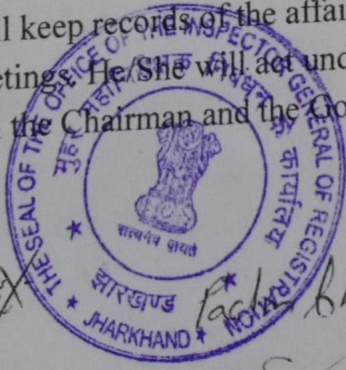 ll keep records of the affai
etings. He/She will act und
the Chairman and the Go
THE SEAL OF THE OFFICE OF THE INSPECTOR GENERAL OF REGISTRATION
मुहर महानिरीक्षक निबंधन के कार्यालय
सत्यमेव जयते
झारखण्ड
★ JHARKHAND ★